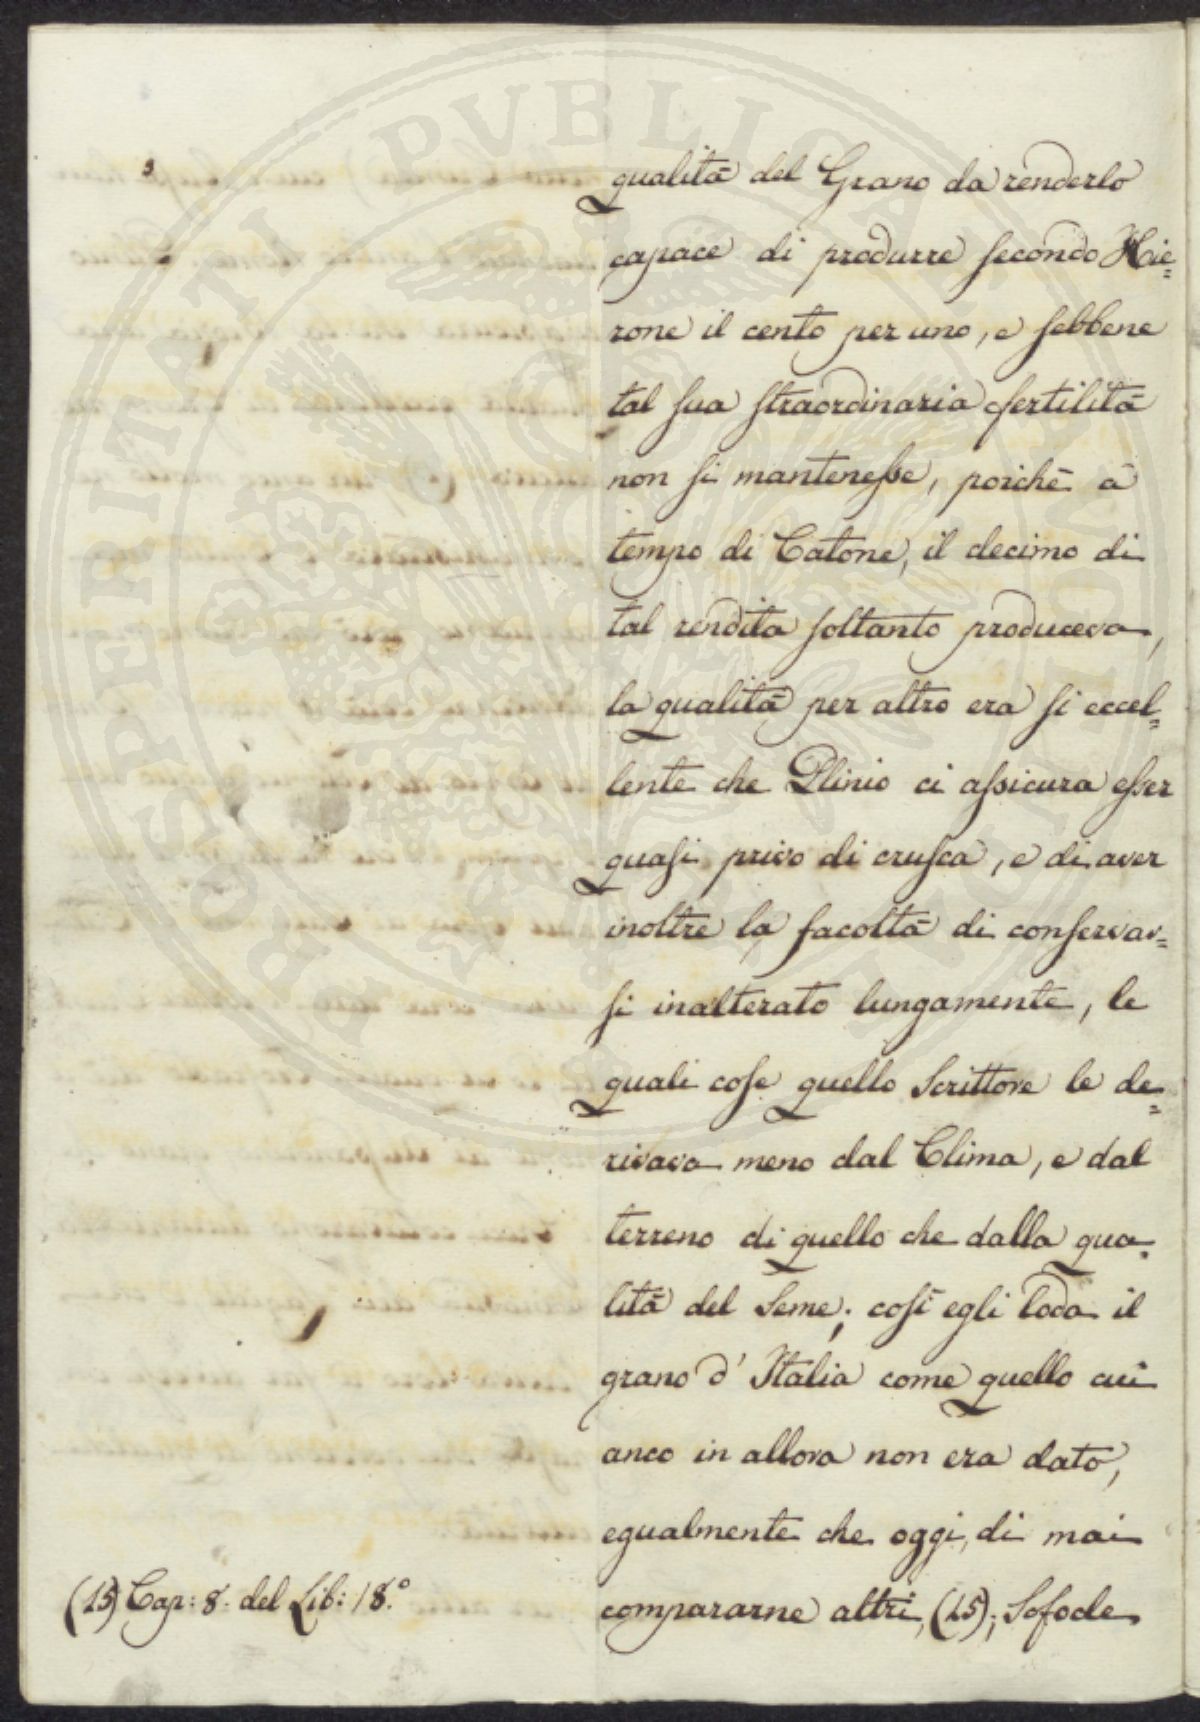 qualità del Grano da renderlo
capace di produrre secondo Hie=
rone il cento per uno, e sebbene
tal sua straordinaria fertilità
non si mantenesse, poichè a
tempo di Catone, il decimo di
tal rendita soltanto produceva,
la qualità per altro era si eccel=
lente che Plinio ci assicura esser
quasi privo di crusca, e di aver
inoltre la facoltà di conservar=
si inalterato lungamente, le
quali cose quello Scrittore le de=
rivava meno dal Clima, e dal
terreno di quello che dalla qua=
lità del Seme; così egli loda il
grano d'Italia come quello cui
anco in allora non era dato,
egualmente che oggi, di mai
compararne altri, (15); Sofocle
(15) Cap: 8. del Lib: 18.º
PROSPERITATI PVBLICAE